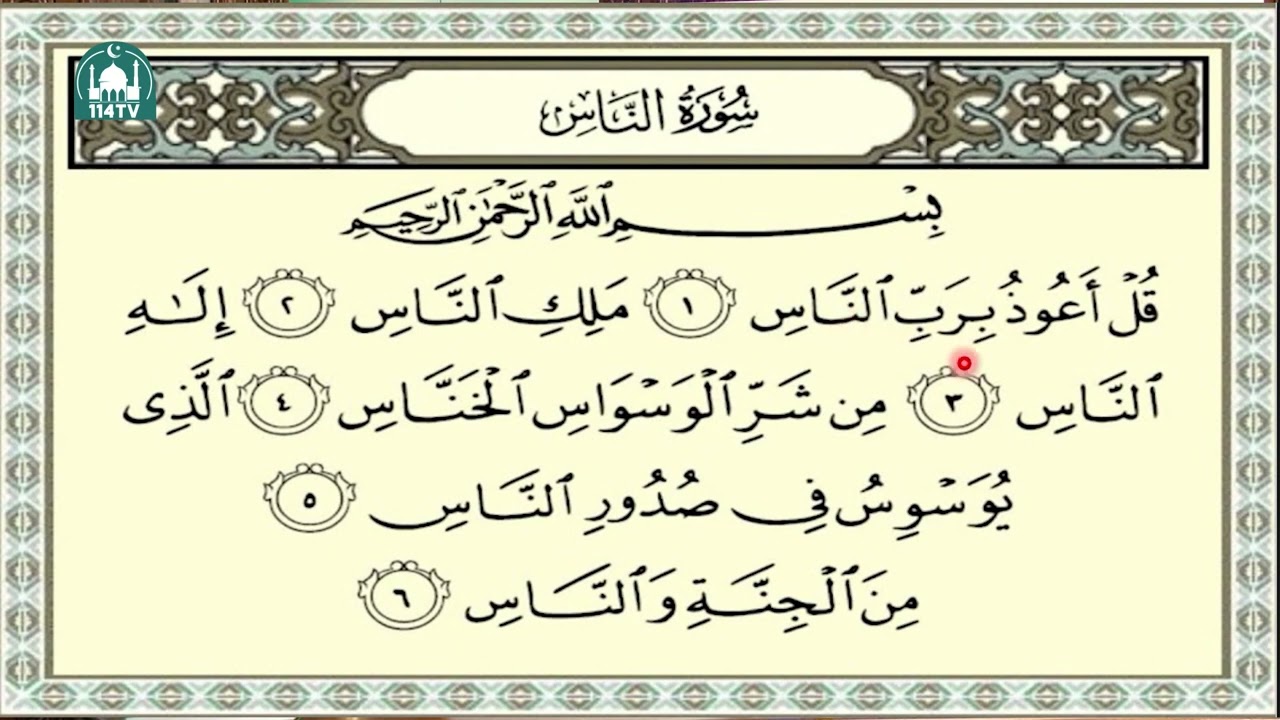 114TV
سُورَةُ النَّاسِ
بِسْمِ ٱللَّهِ ٱلرَّحْمَٰنِ ٱلرَّحِيمِ
قُلْ أَعُوذُ بِرَبِّ ٱلنَّاسِ ١ مَلِكِ ٱلنَّاسِ ٢ إِلَٰهِ
ٱلنَّاسِ ٣ مِن شَرِّ ٱلْوَسْوَاسِ ٱلْخَنَّاسِ ٤ ٱلَّذِى
يُوَسْوِسُ فِى صُدُورِ ٱلنَّاسِ ٥
مِنَ ٱلْجِنَّةِ وَٱلنَّاسِ ٦